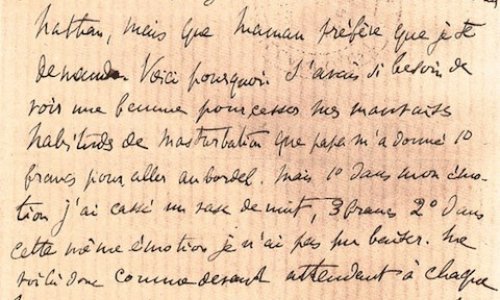 Nathan, mais que Maman préfère que je te
demande. Voici pourquoi. J'avais si besoin de
voir une femme pour cesser mes mauvaises
habitudes de masturbation que papa m'a donné 10
francs pour aller au bordel. Mais 1º dans mon émo-
tion j'ai cassé un vase de nuit, 3 francs 2º dans
cette même émotion je n'ai pas pu baiser. Me
voilà donc comme devant attendant à chaque